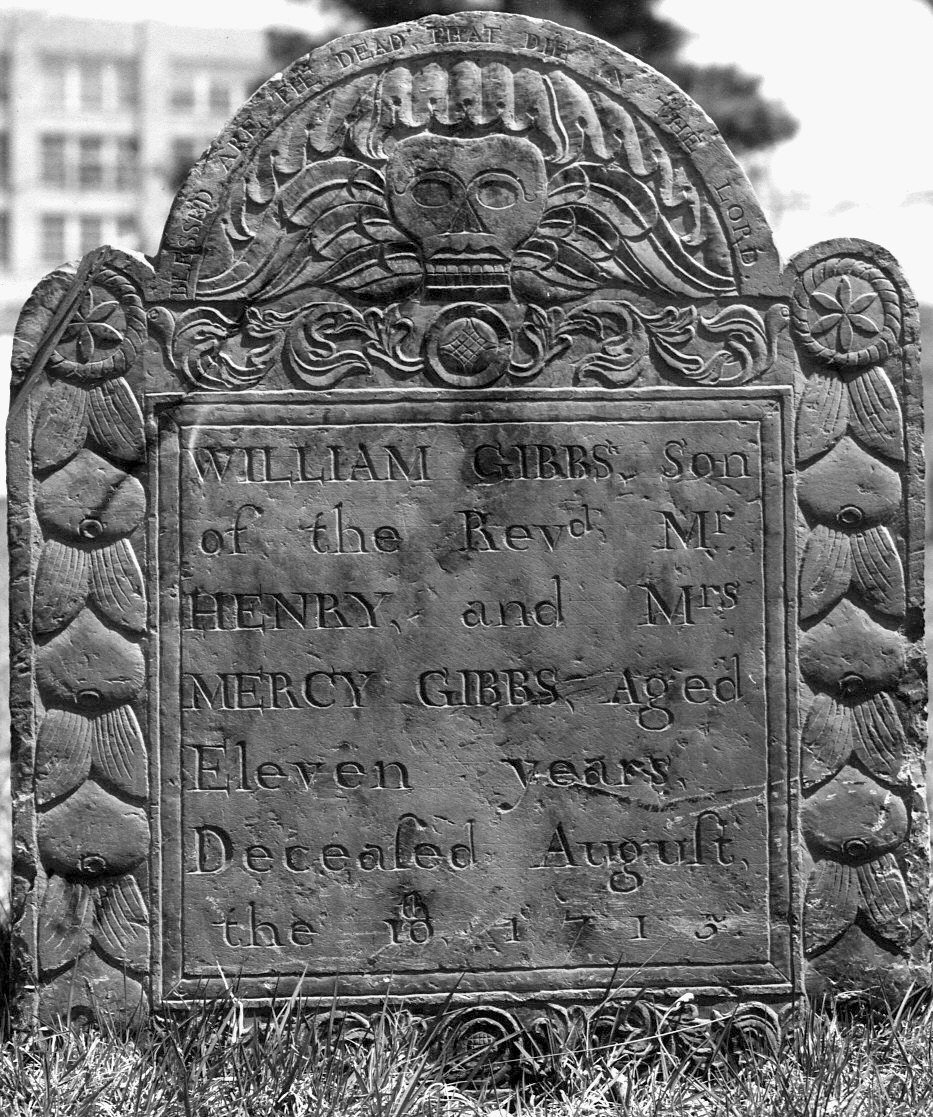 BLESSED ARE THE DEAD, THAT DIE IN THE LORD
WILLIAM GIBBS, Son
of the Revᵈ, Mʳ.
HENRY, and Mʳˢ
MERCY GIBBS, Aged
Eleven years,
Deceaſed Auguſt,
the 10ᵗʰ, 1713.